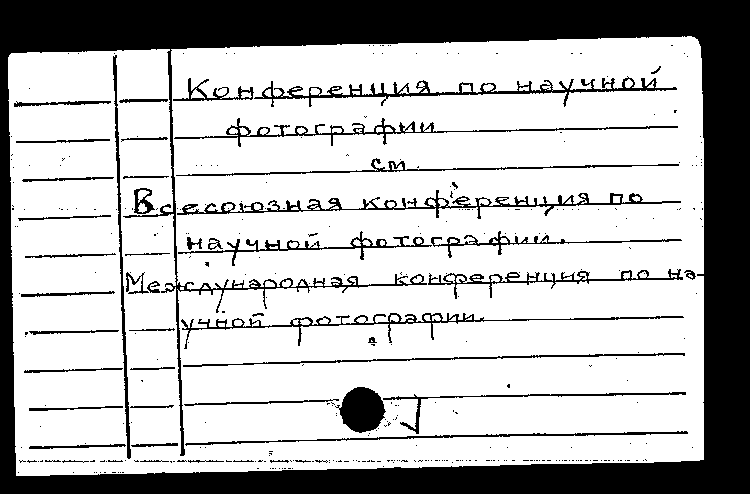 Конференция по научной
фотографии
см.
Всесоюзная конференция по
научной фотографии.
Международная конференция по на-
учной фотографии.